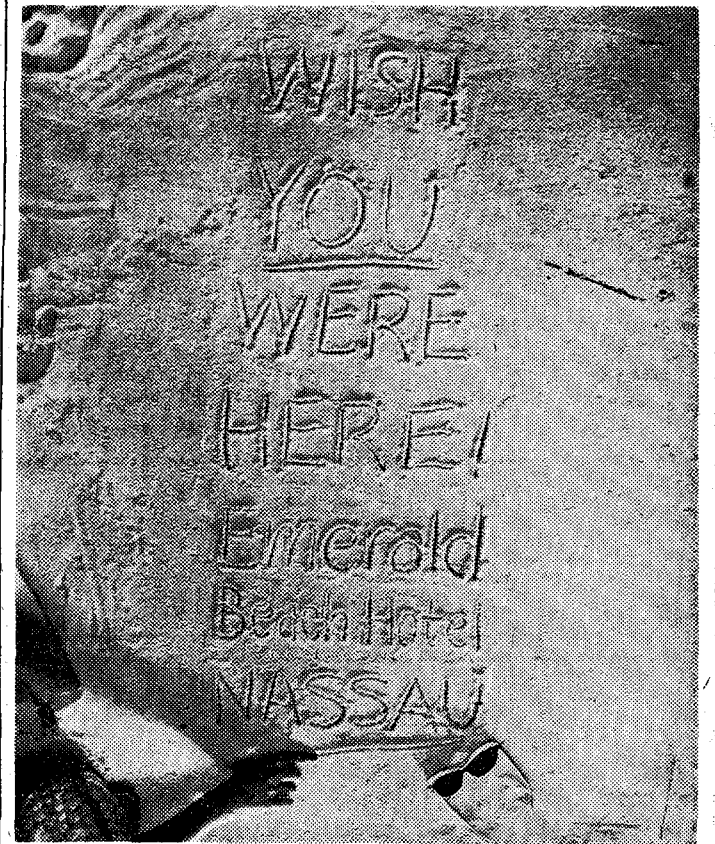 WISH
YOU
WERE
HERE!
Emerald
Beach Hotel
NASSAU